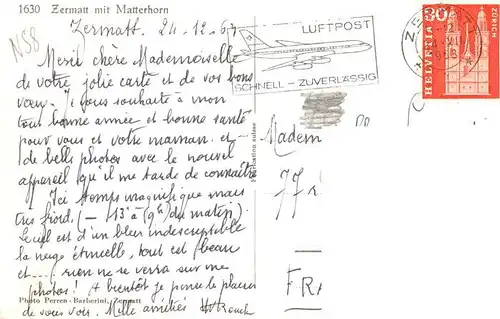 1630 Zermatt mit Matterhorn
N58
Zermatt. 24.12.67
Merci chère Mademoiselle
de votre jolie carte et de vos bons
vœux. Je vous souhaite à mon
tour bonne année et bonne santé
pour vous et votre maman. et
de belles photos avec le nouvel
appareil qu'il me tarde de connaître
Ici temps magnifique mais
très froid (– 13° à 9h du matin).
Le ciel est d'un bleu indescriptible
la neige étincelle, tout est beau
et rien ne se verra sur me
photos! A bientôt je pense le plaisir
de vous voir. Mille amitiés
Photo Perren-Barberini, Zermatt
LUFTPOST
SCHNELL - ZUVERLÄSSIG
HELVETIA
ZÜRICH
Madem
77
FRA